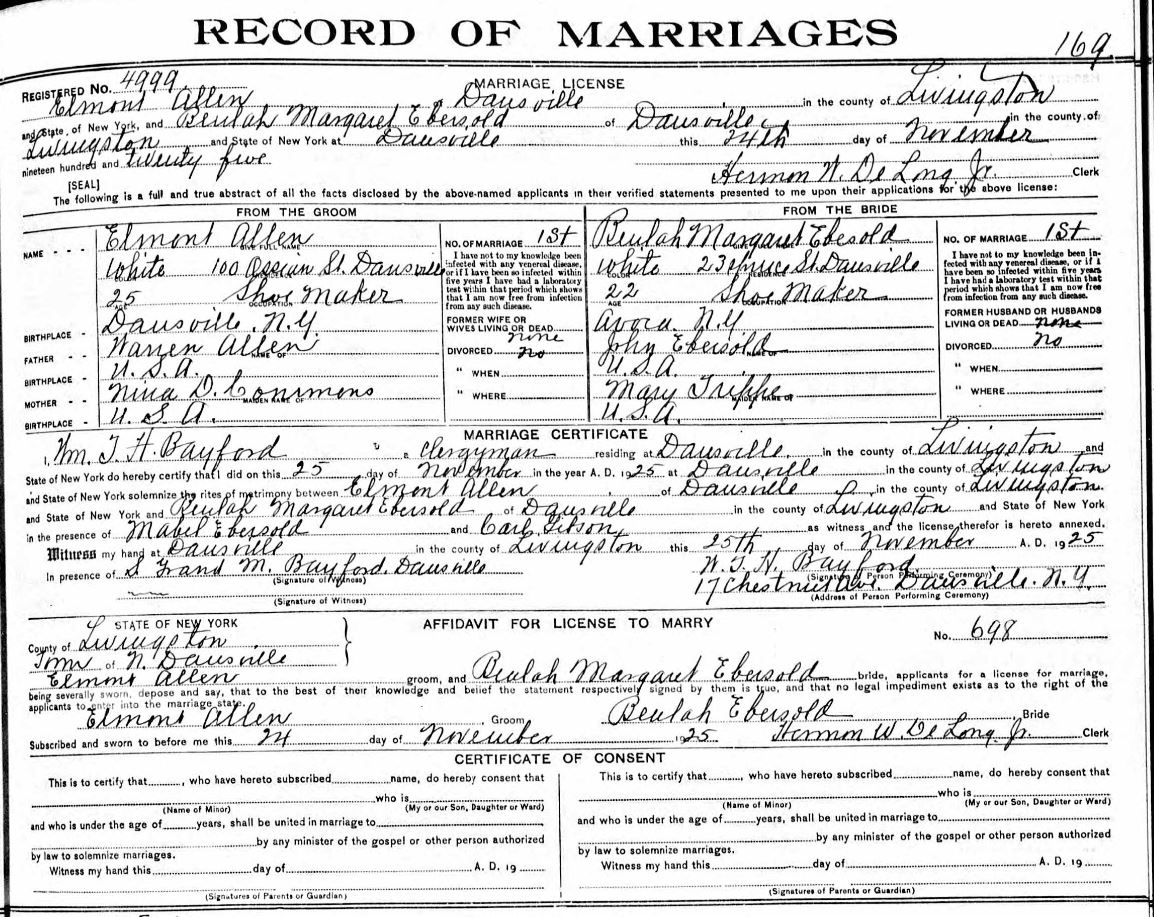 RECORD OF MARRIAGES
169.
REGISTERED No. 4999 MARRIAGE LICENSE
Elmont Allen of Dansville in the county of Livingston
and State of New York, and Beulah Margaret Ebersold of Dansville in the county of
Livingston and State of New York at Dansville this 24th day of November
nineteen hundred and twenty five
Hermon W. De Long Jr. Clerk
[SEAL]
The following is a full and true abstract of all the facts disclosed by the above-named applicants in their verified statements presented to me upon their applications for the above license:
FROM THE GROOM FROM THE BRIDE
NAME - - - Elmont Allen NO. OF MARRIAGE 1st Beulah Margaret Ebersold NO. OF MARRIAGE 1st
White 100 Ossian St. Dansville White 23 Spruce St. Dansville
COLOR RESIDENCE COLOR RESIDENCE
I have not to my knowledge been infected with any venereal disease, or if I have been so infected within five years I have had a laboratory test within that period which shows that I am now free from infection from any such disease.
I have not to my knowledge been infected with any venereal disease, or if I have been so infected within five years I have had a laboratory test within that period which shows that I am now free from infection from any such disease.
25 Shoe Maker 22 Shoe Maker
AGE OCCUPATION AGE OCCUPATION
BIRTHPLACE - Dansville, N.Y. FORMER WIFE OR WIVES LIVING OR DEAD none Avoca N.Y. FORMER HUSBAND OR HUSBANDS LIVING OR DEAD none
FATHER - - Warren Allen DIVORCED no John Ebersold DIVORCED no
BIRTHPLACE - U.S.A. " WHEN U.S.A. " WHEN
MOTHER - - Nina D. Commons " WHERE Mary Trippe " WHERE
MAIDEN NAME OF MAIDEN NAME OF
BIRTHPLACE - U.S.A. U.S.A.
MARRIAGE CERTIFICATE
I, Wm. T. H. Bayford a Clergyman residing at Dansville in the county of Livingston and
State of New York do hereby certify that I did on this 25 day of November in the year A. D. 1925 at Dansville in the county of Livingston
and State of New York solemnize the rites of matrimony between Elmont Allen of Dansville in the county of Livingston
and State of New York and Beulah Margaret Ebersold of Dansville in the county of Livingston and State of New York
in the presence of Mabel Ebersold and Carl Gibson as witness and the license therefor is hereto annexed.
Witness my hand at Dansville in the county of Livingston this 25th day of November A. D. 1925
In presence of S M. Bayford. Dansville W. T. H. Bayford
(Signature of Witness) (Signature of Person Performing Ceremony)
17 Chestnut Ave. Dansville. N.Y.
(Signature of Witness) (Address of Person Performing Ceremony)
STATE OF NEW YORK AFFIDAVIT FOR LICENSE TO MARRY No. 698
County of Livingston
Town of N. Dansville
Elmont Allen groom, and Beulah Margaret Ebersold bride, applicants for a license for marriage,
being severally sworn, depose and say, that to the best of their knowledge and belief the statement respectively signed by them is true, and that no legal impediment exists as to the right of the
applicants to enter into the marriage state.
Elmont Allen Groom Beulah Ebersold Bride
Subscribed and sworn to before me this 24 day of November 1925 Hermon W. De Long Jr. Clerk
CERTIFICATE OF CONSENT
This is to certify that , who have hereto subscribed name, do hereby consent that
who is
(Name of Minor) (My or our Son, Daughter or Ward)
and who is under the age of years, shall be united in marriage to
by any minister of the gospel or other person authorized
by law to solemnize marriages.
Witness my hand this day of A. D. 19
(Signatures of Parents or Guardian)
This is to certify that , who have hereto subscribed name, do hereby consent that
who is
(Name of Minor) (My or our Son, Daughter or Ward)
and who is under the age of years, shall be united in marriage to
by any minister of the gospel or other person authorized
by law to solemnize marriages.
Witness my hand this day of A. D. 19
(Signatures of Parents or Guardian)